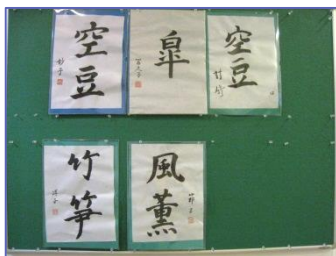 空豆
皐
空豆
竹筍
風薫